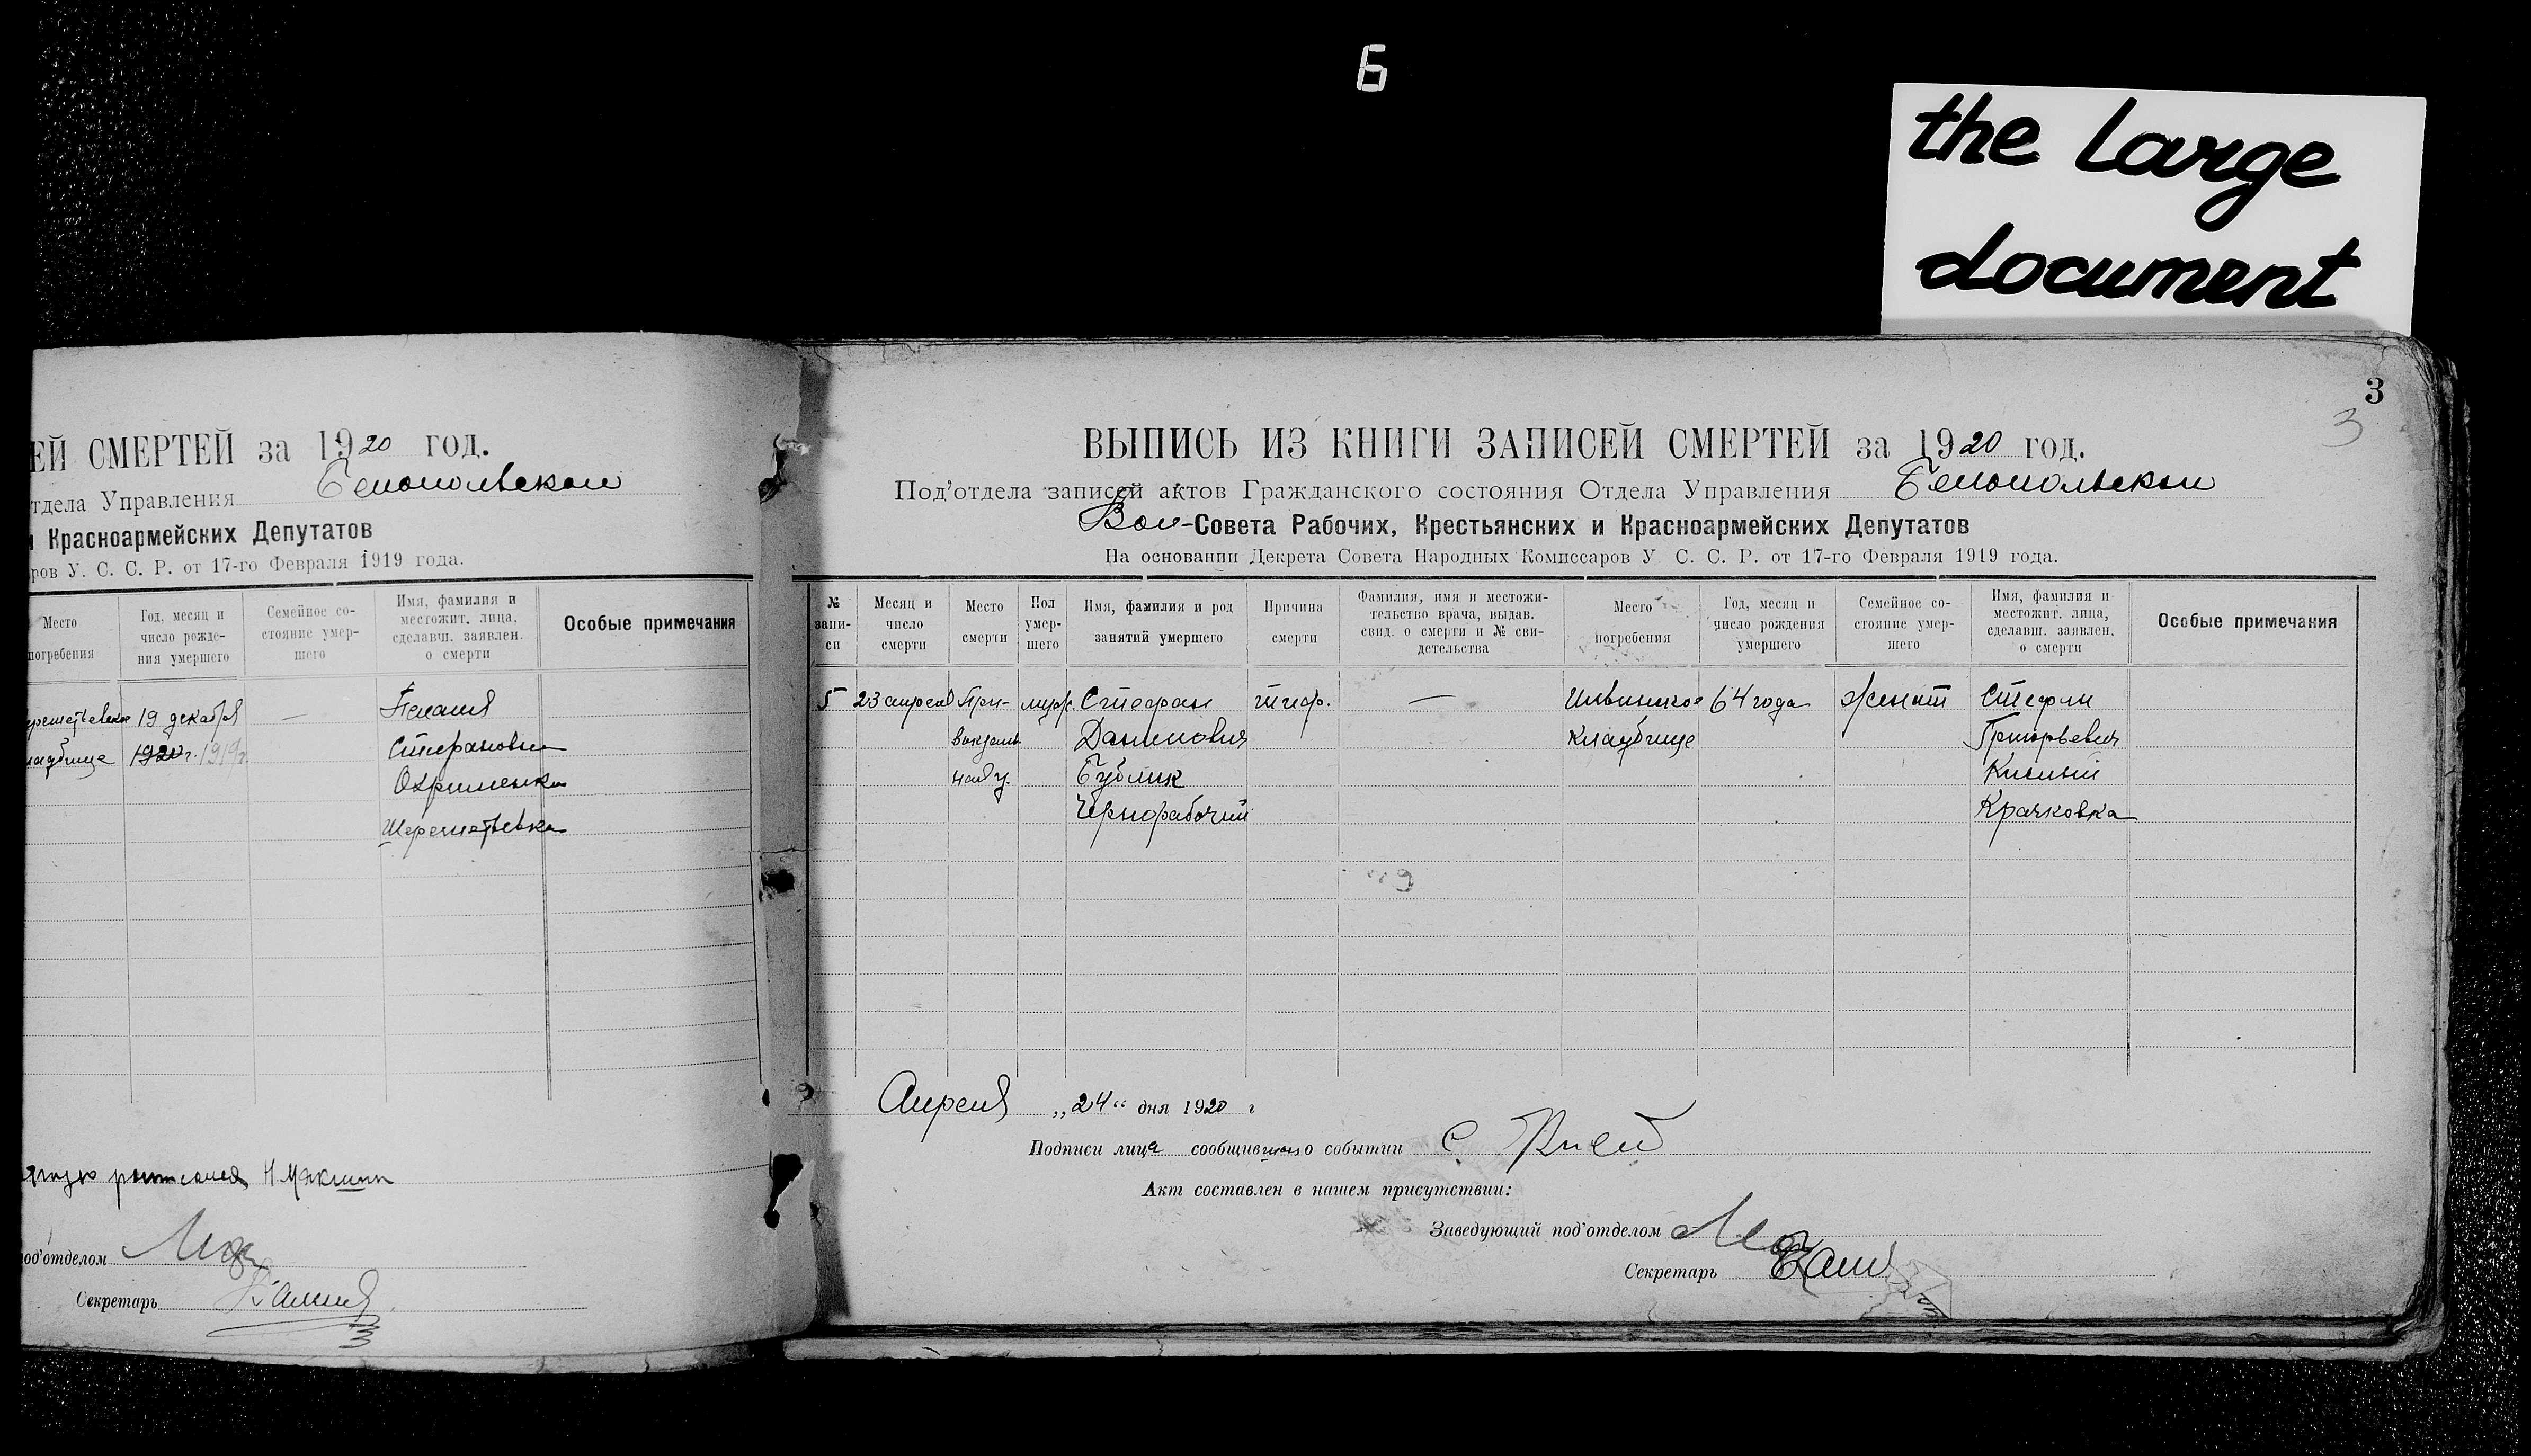 6
the large
document
ЕЙ СМЕРТЕЙ за 1920 год.
тдела Управления Белопольском
и Красноармейских Депутатов
ров У. С. С. Р. от 17-го Февраля 1919 года.
Место погребения
Год, месяц и число рожде-ния умершего
Семейное со-стояние умер-шего
Имя, фамилия и местожит. лица, сделавш. заявлен. о смерти
Особые примечания
19 декабря — Пелагия
кладбище 1920 г. 1919 г. Стефановна
Охрименко
Шереметьевка
Н. Мякшин
под'отделом
Секретарь
3
3
ВЫПИСЬ ИЗ КНИГИ ЗАПИСЕЙ СМЕРТЕЙ за 1920 год.
Под'отдела записей актов Гражданского состояния Отдела Управления Белопольском
Вол-Совета Рабочих, Крестьянских и Красноармейских Депутатов
На основании Декрета Совета Народных Комиссаров У. С. С. Р. от 17-го Февраля 1919 года.
№ запи-си
Месяц и число смерти
Место смерти
Пол умер-шего
Имя, фамилия и род занятий умершего
Причина смерти
Фамилия, имя и местожи-тельство врача, выдав. свид. о смерти и № сви-детельства
Место погребения
Год, месяц и число рождения умершего
Семейное со-стояние умер-шего
Имя, фамилия и местожит. лица, сделавш. заявлен. о смерти
Особые примечания
5 23 апреля При- муж. Стефан тиф. — Ильинское 64 года женат Стефан
вокзаль Данилович кладбище Григорьевич
Бублик
Чернорабочий Крачковка
Апреля „24“ дня 1920 г
Подписи лица сообщившаго о событии С.
Акт составлен в нашем присутствии:
Заведующий под'отделом
Секретарь